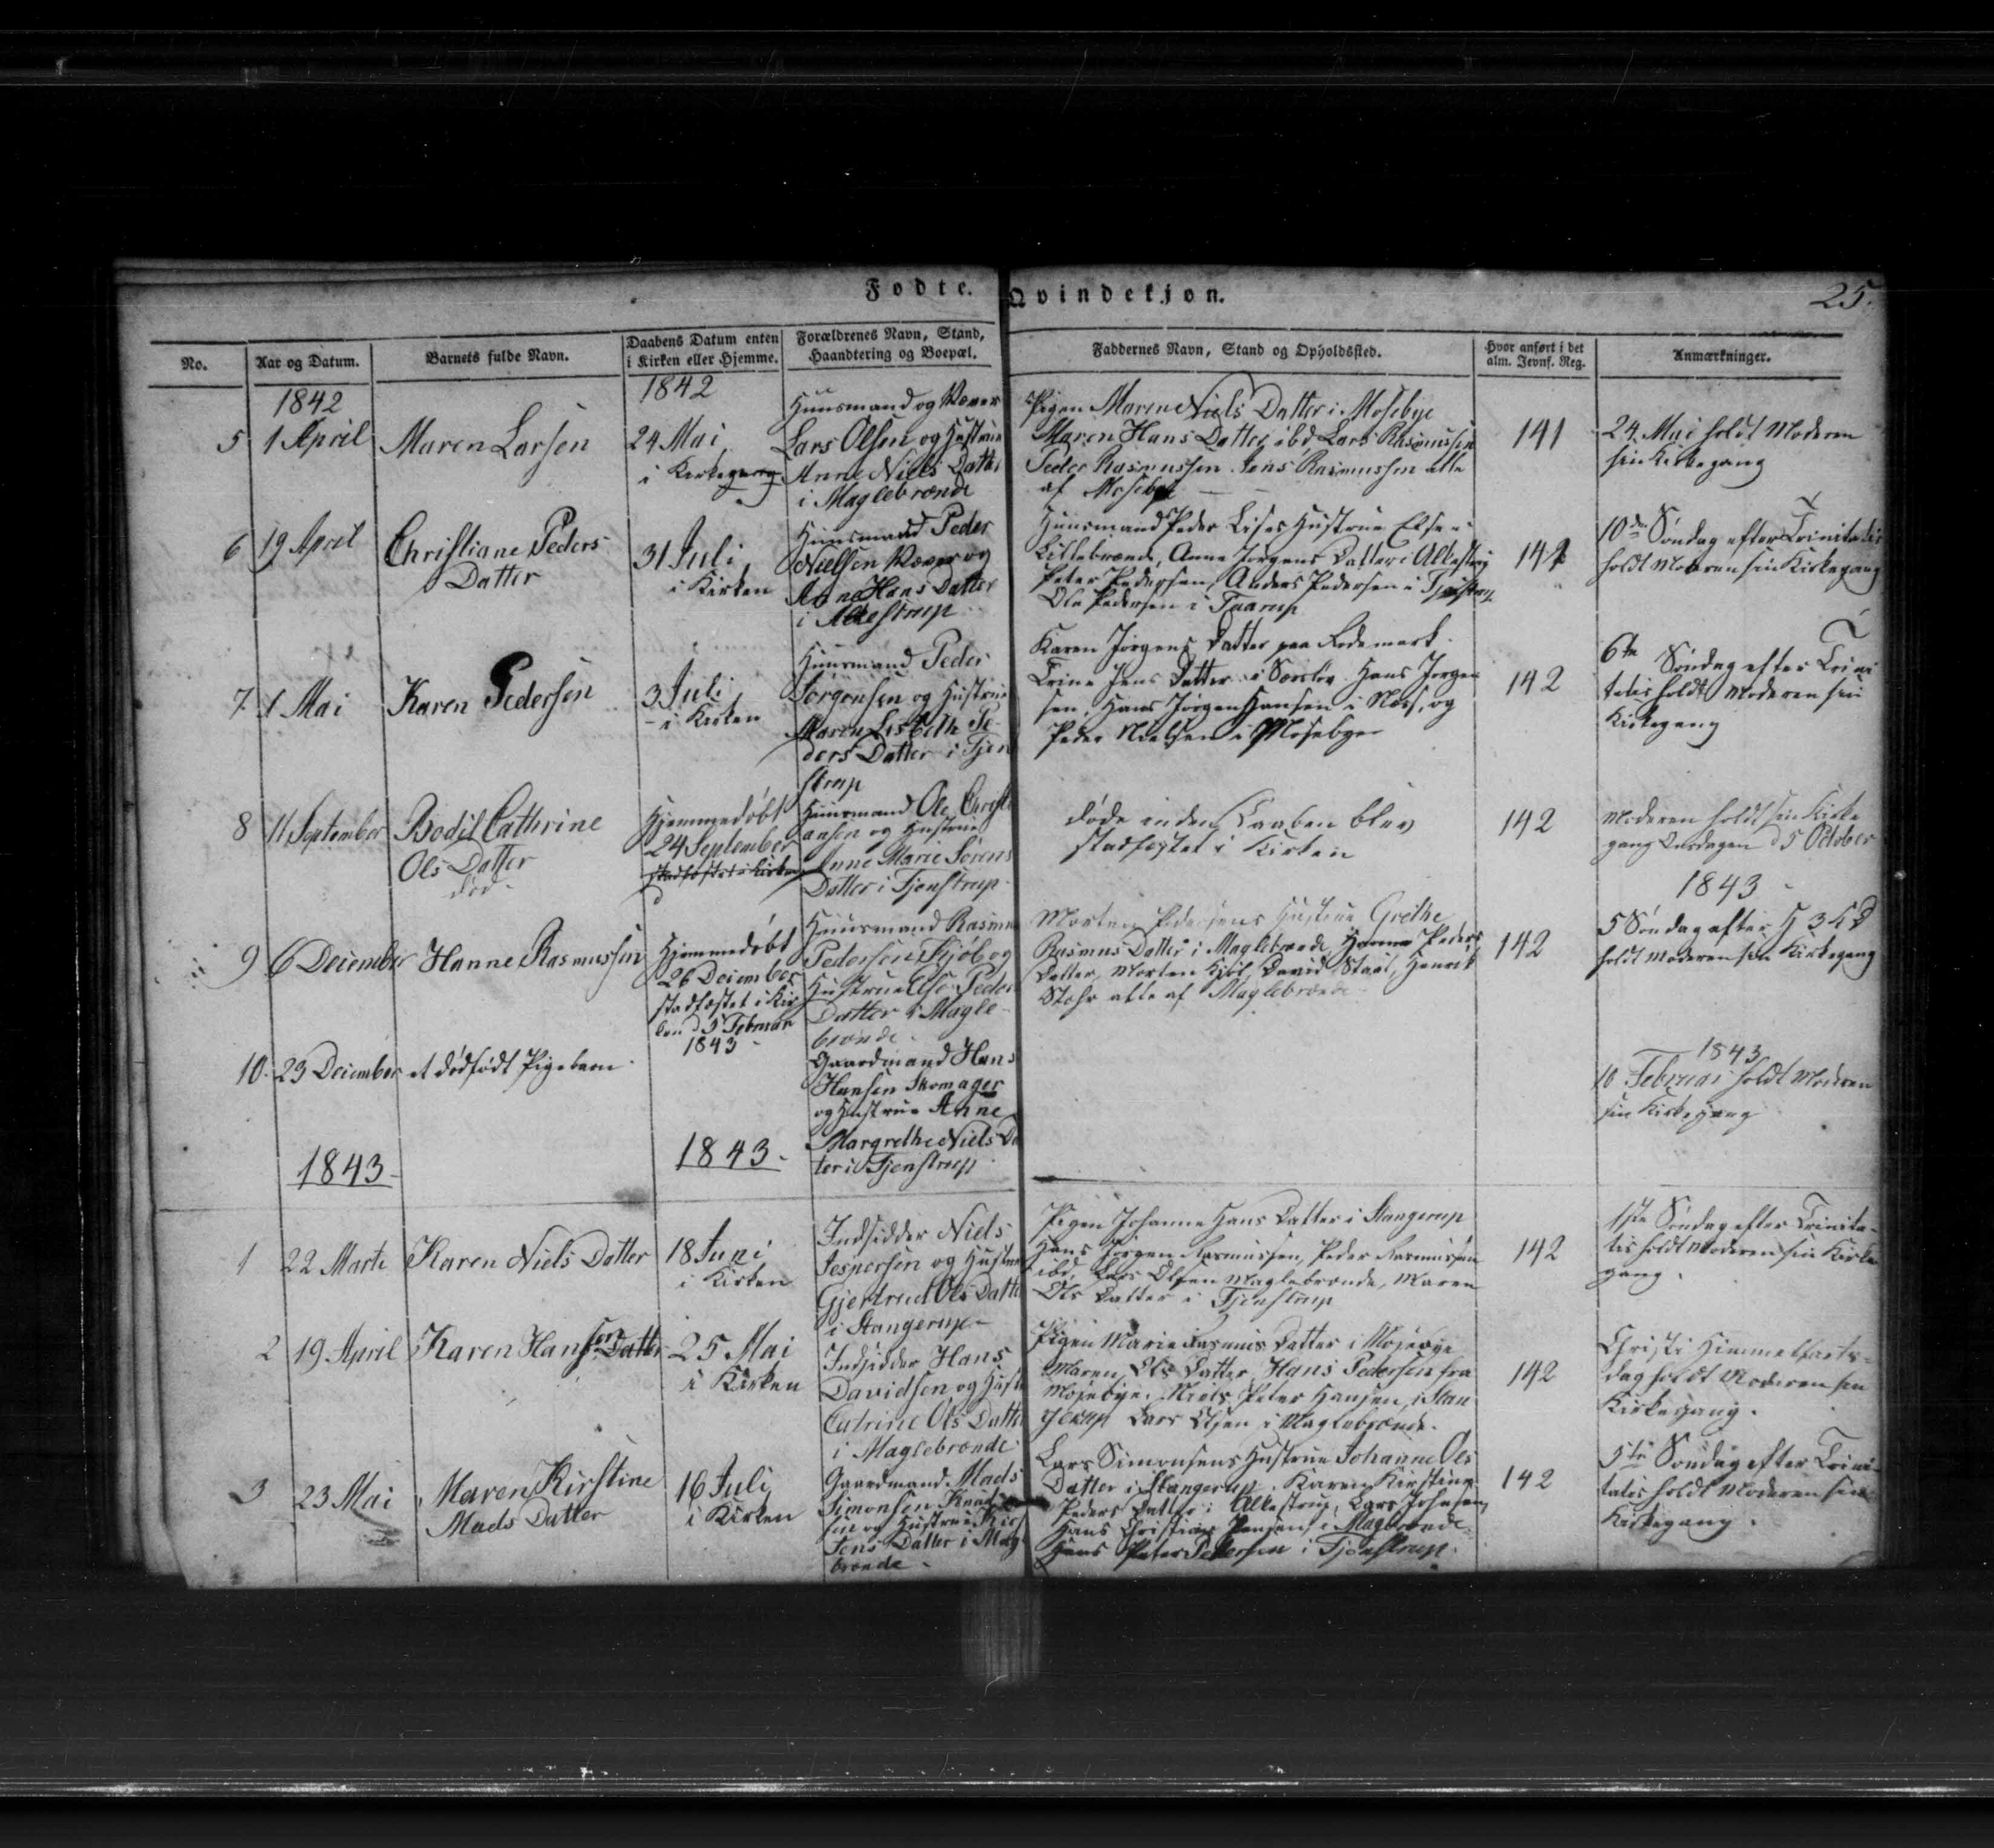 Fødte. Qvindekjøn.
25.
No.
Aar og Datum.
Barnets fulde Navn.
Daabens Datum enten
i Kirken eller Hjemme.
Forældrenes Navn, Stand,
Haandtering og Boepæl.
Faddernes Navn, Stand og Opholdssted.
Hvor anført i det
alm. Jevnf. Reg.
Anmærkninger.
1842
1842
5
1 April
Maren Larsen
24 Mai
i Kirken
Huusmand og Væver
Lars Olsen og Hustrue
Anne Niels Datter
i Maglebrænde
Pigen Maren Niels Datter i Mosebye
Maren Hans Datter ibd, Lars Rasmussen
Peder Rasmussen Jens Rasmussen alle
af Mosebye
141
24 Mai holdt Moderen
sin Kirkegang
6
19 April
Christiane Peders
Datter
31 Juli
i Kirken
Huusmand Peder
Nielsen Væver og
Ane Hans Datter
i Alkestrup
Huusmand Peder Lises Hustrue Else i
Lillebrænde, Anne Jørgens Datter i Alkestrup
Peter Pedersen, Anders Pedersen i Tjenstrup
Ole Pedersen i Taarup
142
10de Søndag efter Trinitatis
holdt Moderen sin Kirkegang
7
1 Mai
Karen Pedersen
3 Juli
i Kirken
Huusmand Peder
Jørgensen og Hustrue
Maren Lisbeth Pe-
ders Datter i Tjen
strup
Karen Jørgens Datter paa Rodemark
Trine Jens Datter i Sørslev Hans Jørgen
sen, Hans Jørgen Hansen i Næs, og
Peder Nielsen i Mosebye
142
6te Søndag efter Trini
tatis holdt Moderen sin
Kirkegang
8
11 September
Bodil Cathrine
Ols Datter
død
Hjemmedøbt
24 September
stadfæstet i Kirken
Huusmand Ole Christi
ansen og Hustrue
Anne Marie Sørens
Datter i Tjenstrup
døde inden Daaben blev
stadfæstet i Kirken
142
Moderen holdt sin Kirke
gang Onsdagen d 5 October
9
6 December
Hanne Rasmussen
Hjemmedøbt
26 December
stadfæstet i Kir
ken d 5 Februar
1843
Huusmand Rasmus
Pedersen Kjøl og
Hustrue Else Peders
Datter i Magle-
brænde
Morten Pedersens Hustrue Grethe
Rasmus Datter i Maglebrænde, Hanne Peders
Datter, Morten Kjøl, David Staal, Henrik
Stohr alle af Maglebrænde
142
1843
5 Søndag efter H 3 K D
holdt Moderen sin Kirkegang
10.
23 December
et dødfødt Pigebarn
Gaardmand Hans
Hansen Skomager
og Hustrue Anne
Margrethe Niels Dat
ter i Tjenstrup
1843
10 Februar holdt Moderen
sin Kirkegang
1843
1843
1
22 Marts
Karen Niels Datter
18 Juni
i Kirken
Indsidder Niels
Jespersen og Hustrue
Gjertrud Ols Datter
i Stangerup
Pigen Johanne Hans Datter i Stangerup
Hans Jørgen Rasmussen, Peder Rasmussen
ibd, Lars Olsen Maglebrænde, Maren
Ols Datter i Tjenstrup
142
1ste Søndag efter Trinita-
tis holdt Moderen sin Kirke
gang.
2
19 April
Karen Hansen Datter
25 Mai
i Kirken
Indsidder Hans
Davidsen og Hustrue
Catrine Ols Datter
i Maglebrænde
Pigen Marie Rasmus Datter i Mosebye
Maren Ols Datter, Hans Pedersen fra
Mosebye, Niels Peter Hansen i Stan
gerup Lars Olsen i Maglebrænde.
142
Christi Himmelfarts-
dag holdt Moderen sin
Kirkegang.
3
23 Mai
Maren Kirstine
Mads Datter
16 Juli
i Kirken
Gaardmand Mads
Simonsen Knud
sen og Hustrue
Jens Datter i Magle
brænde
Lars Simonsens Hustrue Johanne Ols
Datter i Stangerup. Karen Kirstine
Peders Datter i Alkestrup, Lars Johansen
Hans Christian Jensen i Maglebrænde
Hans Peter Pedersen i Tjenstrup.
142
5te Søndag efter Trini-
tatis holdt Moderen sin
Kirkegang.